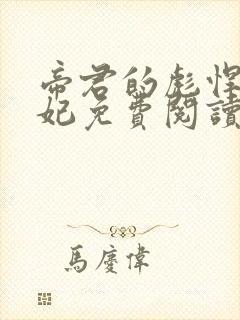 帝君的彪悍
妃免費閱讀
馬慶偉